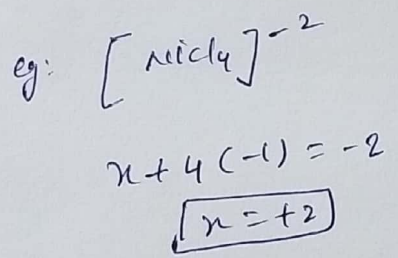 eg: [NiCl4]-2
x + 4 (-1) = -2
x = +2